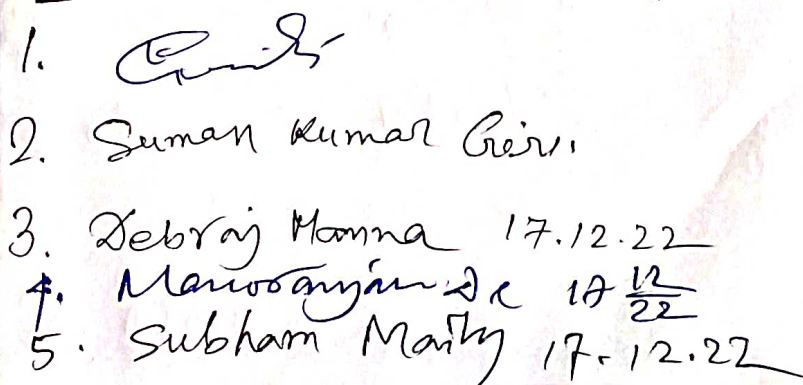 1.
2. Suman Kumar Giri.
3. Debraj Manna 17.12.22
4. Manoranjan De 17 12/22
5. Subham Maity 17.12.22